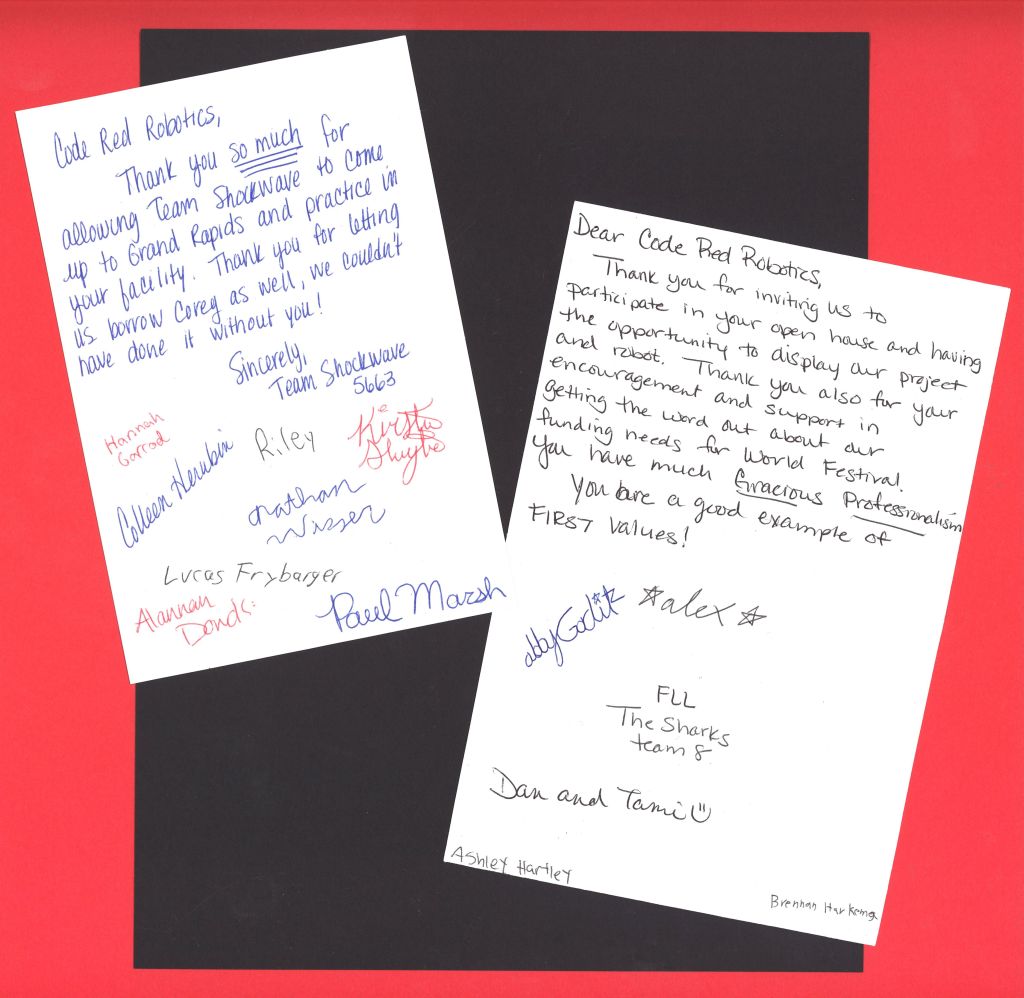 Code Red Robotics,
Thank you so much for
allowing Team Shockwave to come
up to Grand Rapids and practice in
your facility. Thank you for letting
us borrow Coreg as well, we couldn't
have done it without you!
Sincerely,
Team Shockwave
5663
Hannah
Garrod
Colleen Herubin
Riley
Kirstie
Nathan
Lucas Frybarger
Alannah
Paul Marsh
Dear Code Red Robotics,
Thank you for inviting us to
participate in your open house and having
the opportunity to display our project
and robot. Thank you also for your
encouragement and support in
getting the word out about our
funding needs for World Festival.
You have much Gracious Professionalism
You are a good example of
FIRST values!
abby
alex
FLL
The Sharks
team 8
Dan and Tami
Ashley Hartley
Brennan Harkema